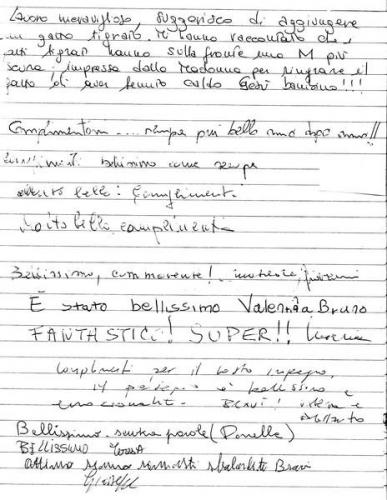 Lavoro meraviglioso, suggerisco di aggiungere
un gatto tigrato. Mi hanno raccontato che
tutti tigrati hanno sulla fronte una M più
scura: impressa dalla Madonna per ringraziare il
gatto di aver tenuto caldo Gesù bambino!!!
Complimentoni... sempre più bello anno dopo anno!!
Complimenti bellissimo come sempre
molto bello! Complimenti
Molto bello complimenti
Bellissimo, commovente!
È stato bellissimo Valentina Bruno
FANTASTICO! SUPER!!
Complimenti per il vostro impegno,
il presepe è bellissimo e
emozionante. Bravi!
Bellissimo senza parole (Donella)
BELLISSIMO
siamo rimasti Bravi